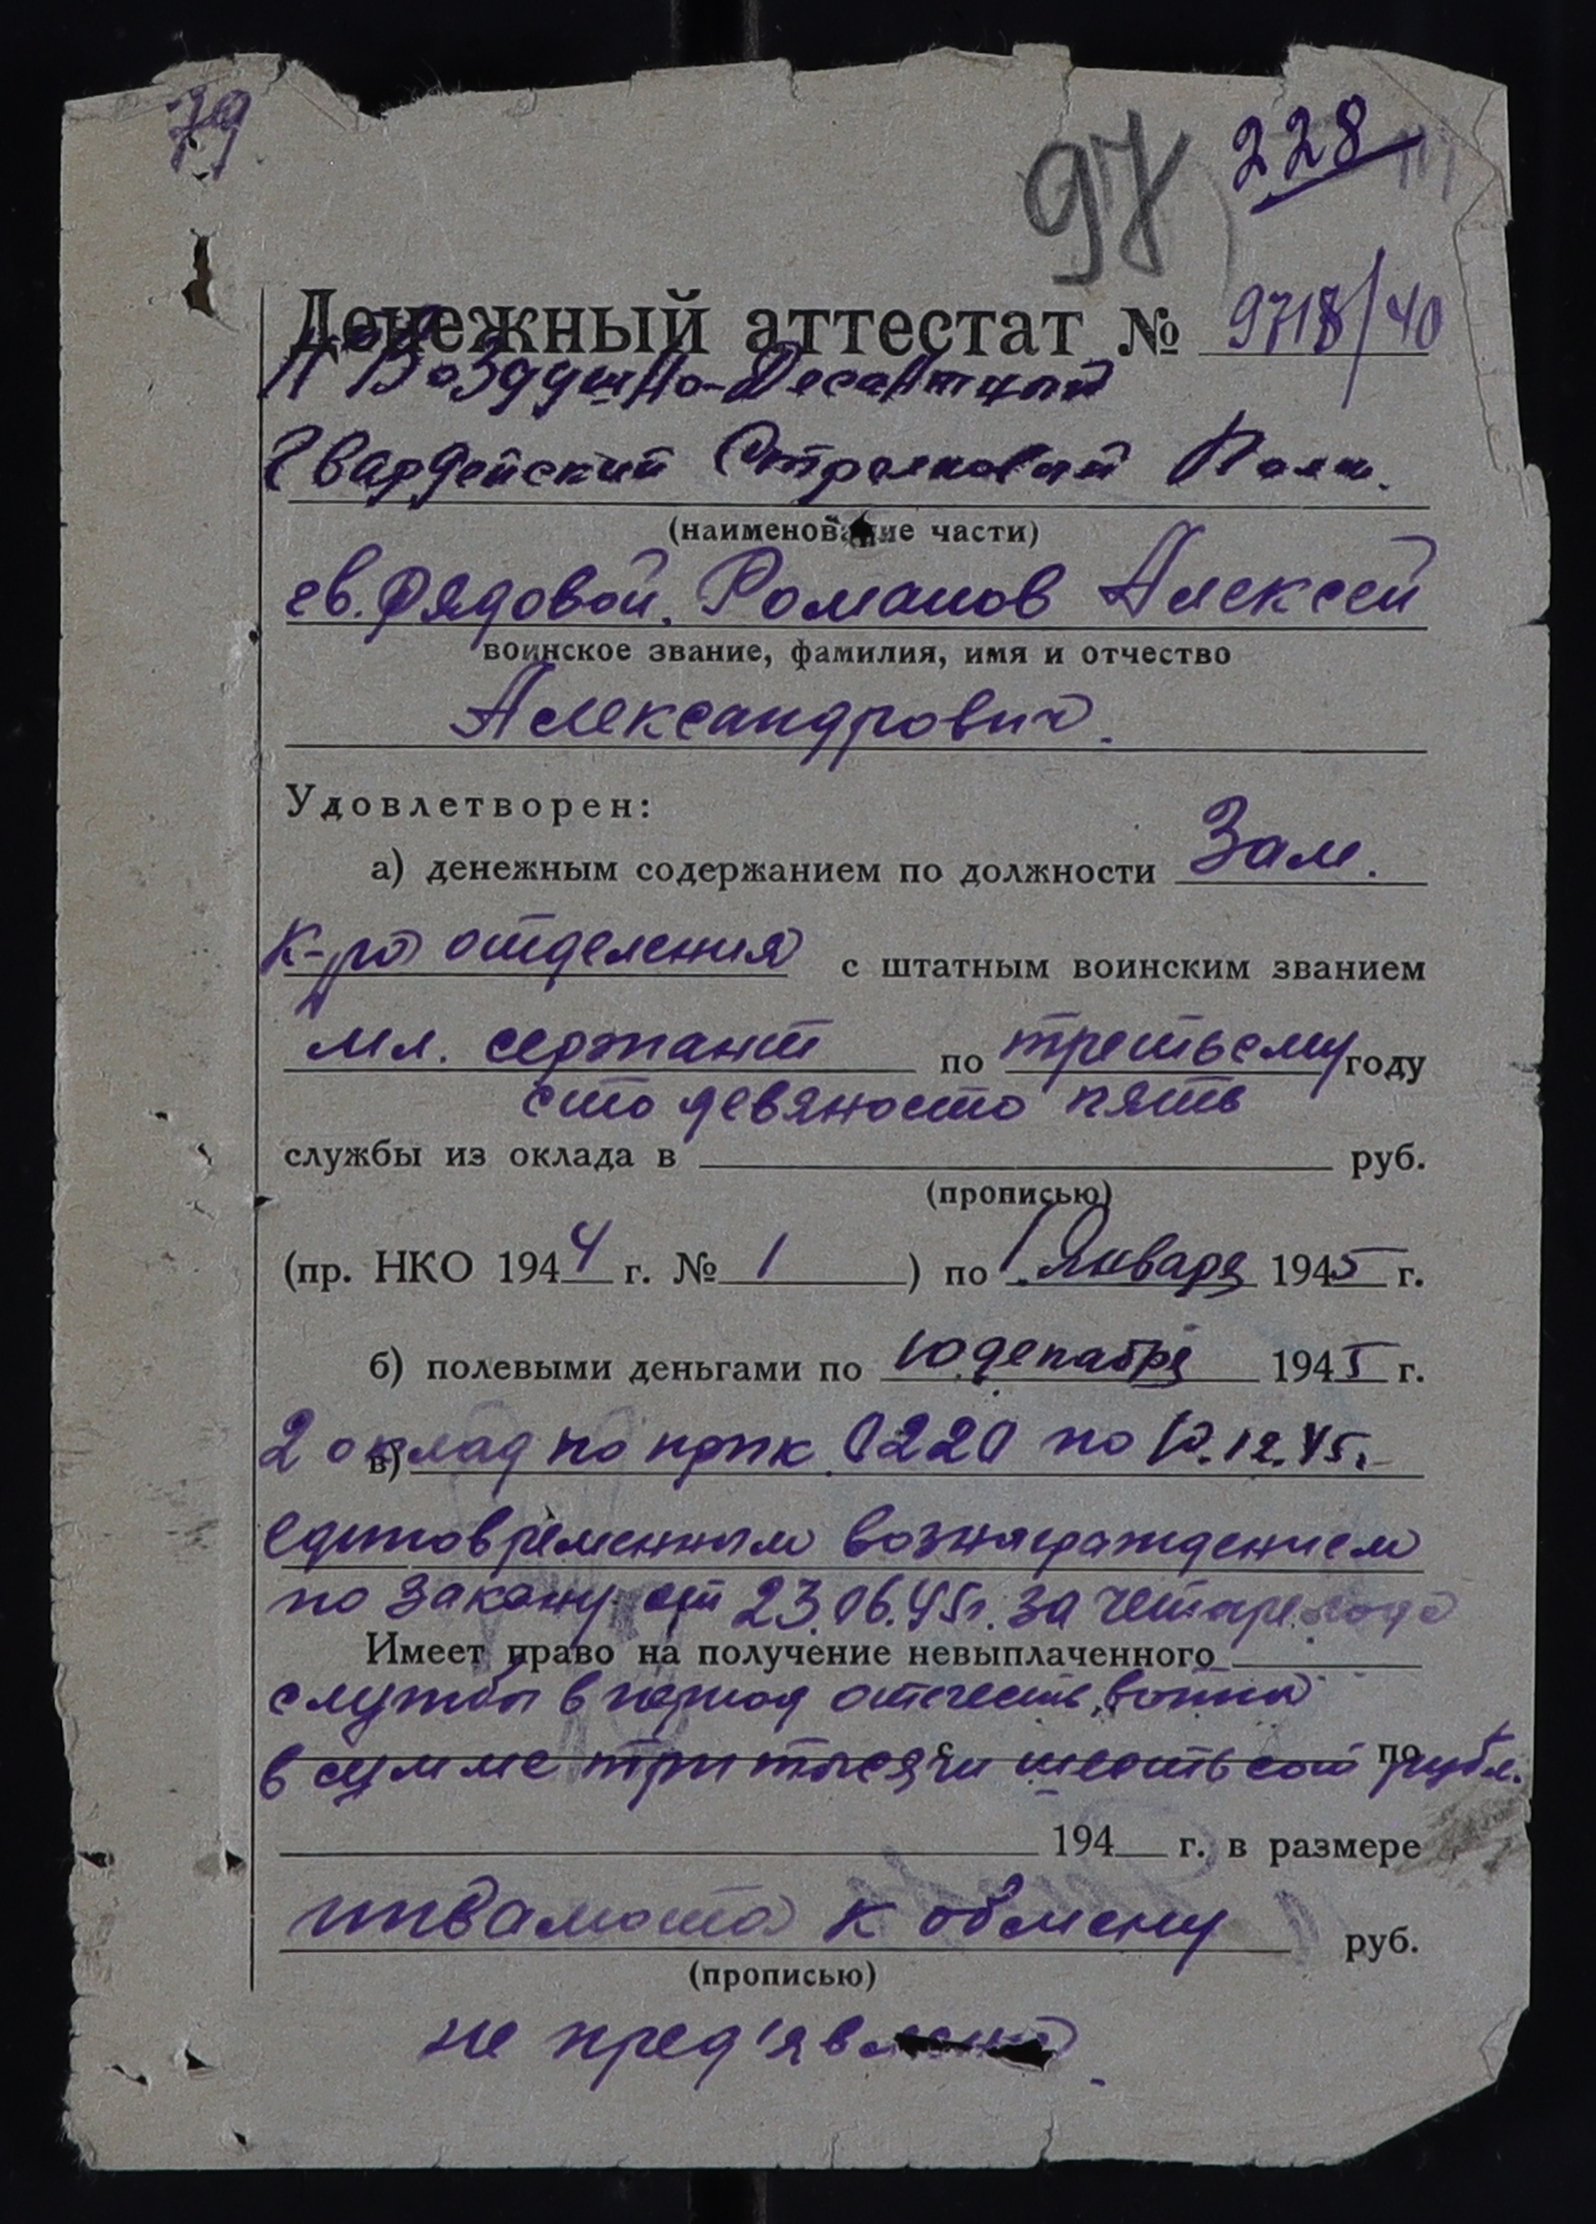 79
97
228
Денежный аттестат № 9718/40
Воздушно-Десантный
Гвардейский Стрелковый Полк.
(наименование части)
гв. рядовой. Романов Алексей
воинское звание, фамилия, имя и отчество
Александрович.
Удовлетворен:
а) денежным содержанием по должности Зам.
к-ра отделения с штатным воинским званием
мл. сержант по третьему году
сто девяносто пять
службы из оклада в руб.
(прописью)
(пр. НКО 1944 г. № 1 ) по 1. Января 1945 г.
б) полевыми деньгами по 10 декабря 1945 г.
в) 2 оклад по прик 0220 по 10.12.45г.
единовременным вознаграждением
по закону от 23.06.45г. за четыре года
Имеет право на получение невыплаченного
службы в период отечеств. войны
с по
в сумме три тысячи шестьсот рубл.
194 г. в размере
инвалюта к обмену руб.
(прописью)
не пред'явлена.